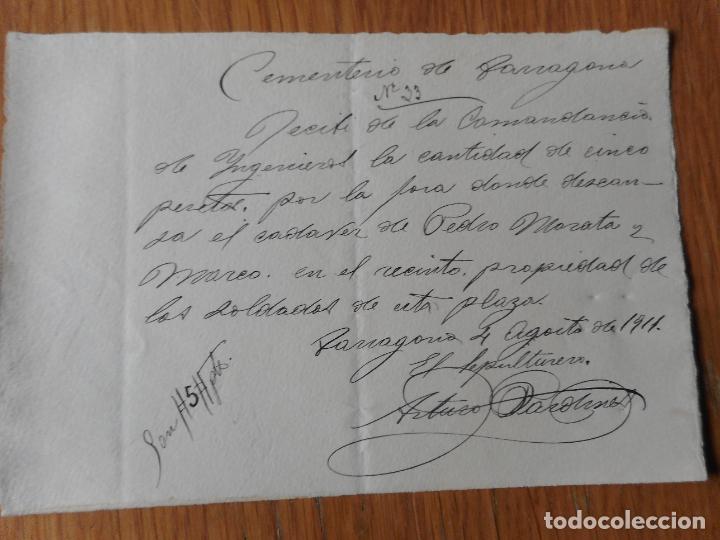 Cementerio de Tarragona
Nº 33
Recibí de la Comandancia
de Yngenieros la cantidad de cinco
pesetas. por la fosa donde descan-
sa el cadaver de Pedro Morata y
Marco. en el recinto. propiedad de
los soldados de esta plaza.
Tarragona 4 Agosto de 1911.
El Sepulturero.
Arturo Pardines
Son #5# pts.
todocoleccion.net